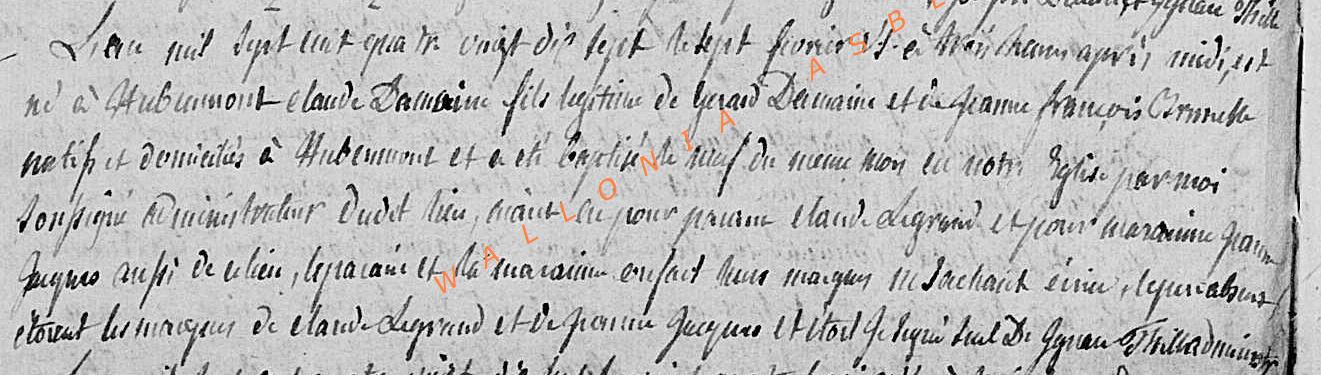 L'an mil sept cent quatre vingt dix sept le sept février à trois heures après midi, est
né à Hubermont claude Damaine fils legitime de Gerard Damaine et de jeanne françois
natifs et domiciliés à Hubermont et a eté baptisé le neuf du meme mois en notre Eglise par moi
soussigné administrateur dudit lieu, aiant eu pour parain claude Legrand et pour maraine jeanne
jacques aussi de ce lieu, le parain et la maraine on fait leurs marques ne sachant écrire, le pere absent
étoient les marques de claude Legrand et de jeanne jacques et étoit signé administr
WALLONIA ASBL